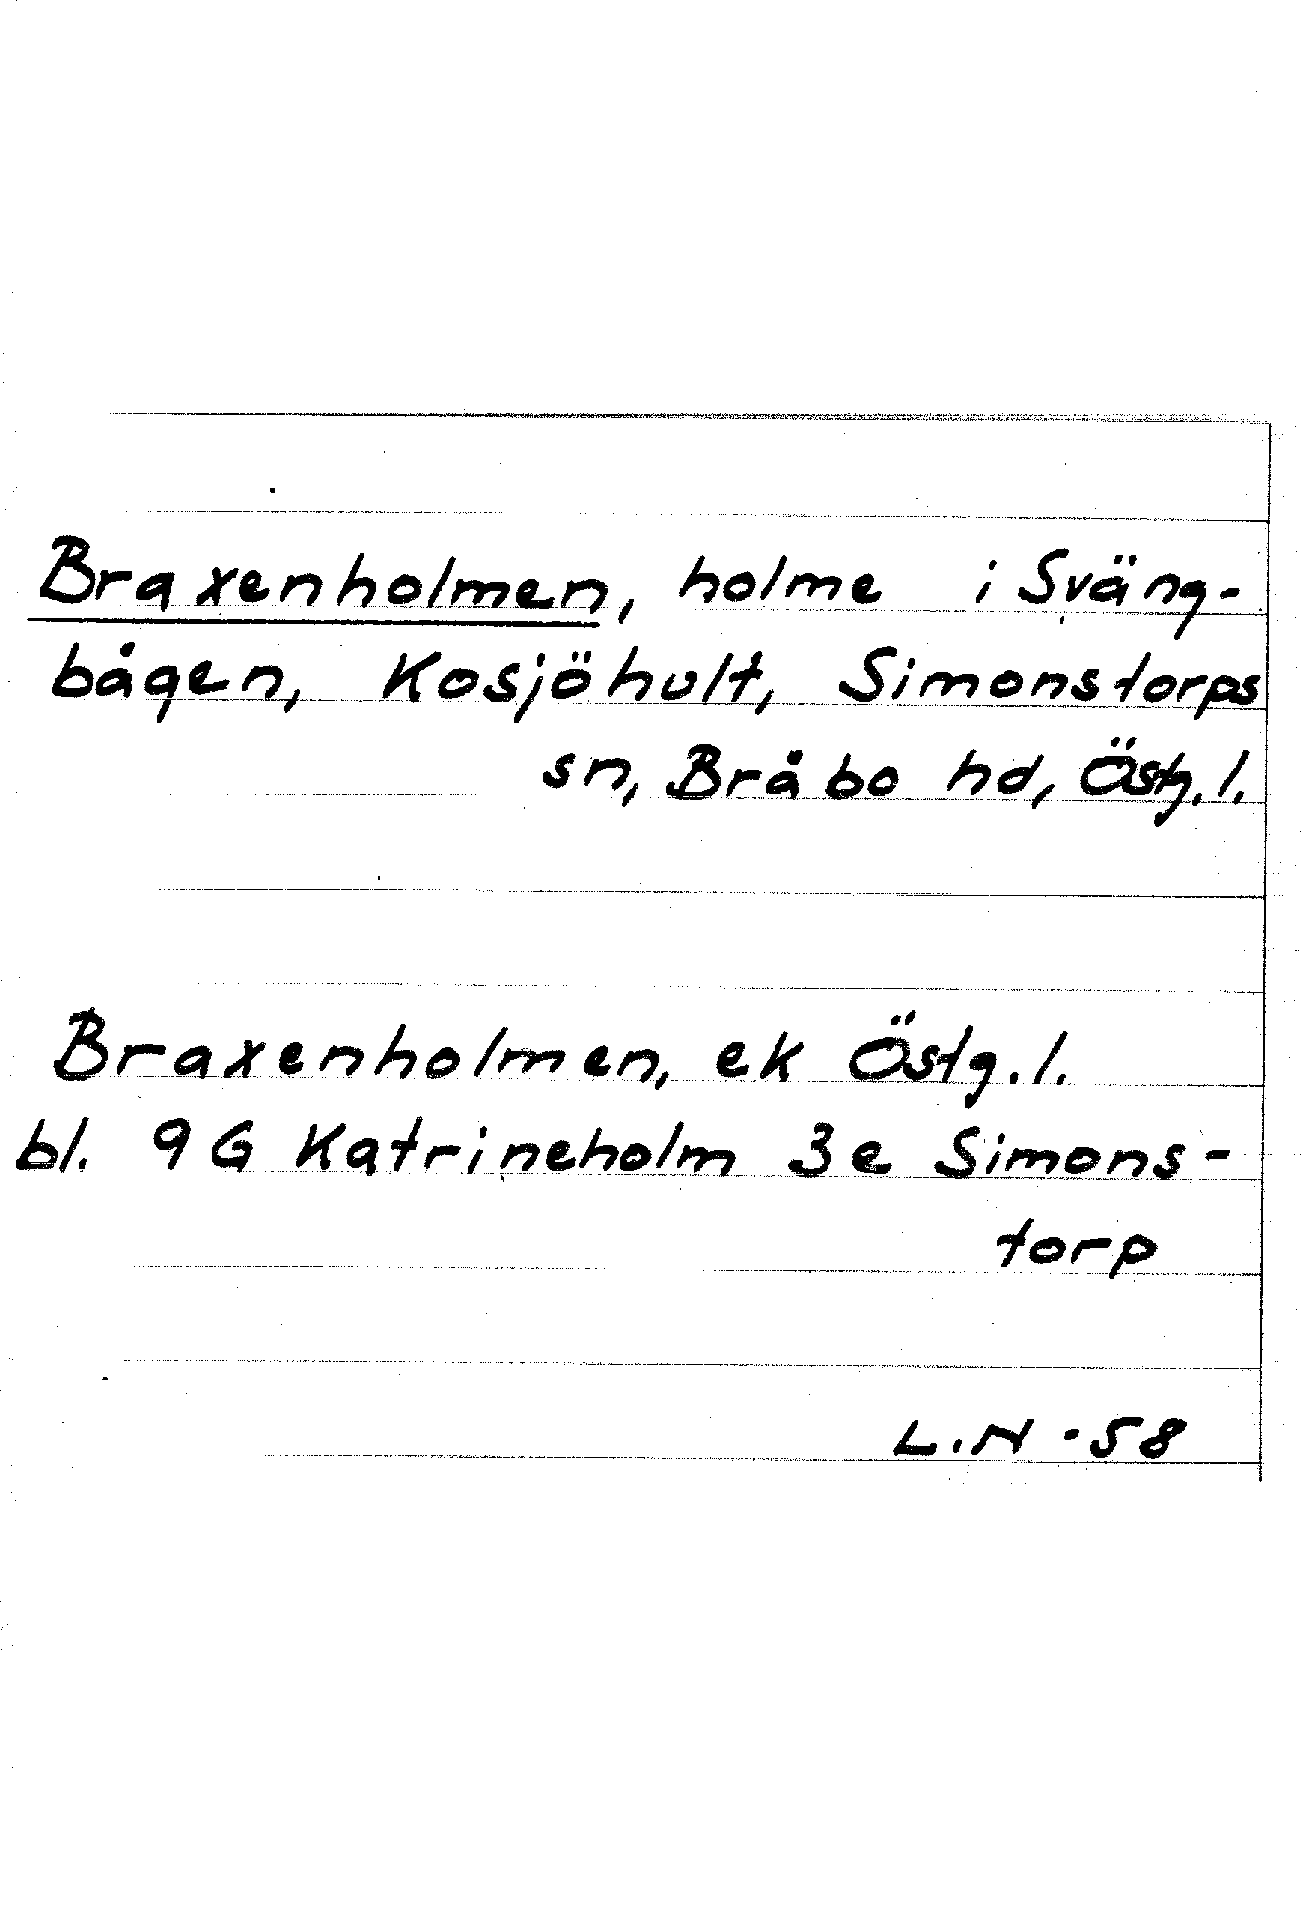 Braxenholmen, holme i Sväng-
bågen, Kosjöhult, Simonstorps
sn, Bråbo hd, Östg.l.
Braxenholmen, ek Östg.l.
bl. 9G Katrineholm 3e Simons-
torp
L.N -58